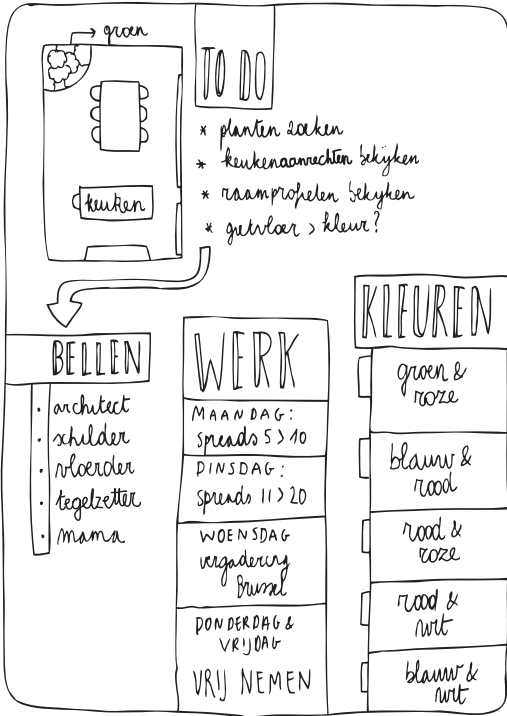 groen
keuken
TO DO
* planten zoeken
* keukenaanrechten bekijken
* raamprofielen bekijken
* gietvloer > kleur?
BELLEN
· architect
· schilder
· vloerder
· tegelzetter
· mama
WERK
MAANDAG:
spreads 5 > 10
DINSDAG:
spreads 11 > 20
WOENSDAG
vergadering
Brussel
DONDERDAG &
VRIJDAG
VRIJ NEMEN
KLEUREN
groen &
roze
blauw &
rood
rood &
roze
rood &
wit
blauw &
wit